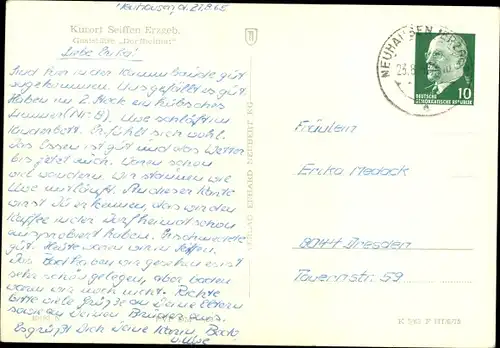 Neuhausen, d. 22.8.65
Kurort Seiffen Erzgeb.
Gaststätte „Dorfheimat"
Liebe Erika!
Sind hier in der gut
angekommen. Uns gefällt es gut.
Haben im 2. Stock ein hübsches
Zimmer (Nr. 8). Uwe schläft im
Kinderbett. Er fühlt sich wohl.
Das Essen ist gut und das Wetter
bis jetzt auch. Waren schon
viel wandern. Wir staunen wie
Uwe mitläuft. An dieser Karte
wirst Du erkennen, das wir den
Kaffee in der Dorfheimat schon
ausprobiert haben. Er schmeckte
gut. Heute waren wir in Seiffen.
Das Bad haben wir gesehen es ist
sehr schön gelegen, aber baden
waren wir noch nicht. Richte
bitte viele Grüße an Deine Eltern
sowie an Deinen Bruder aus.
Es grüßt Dich Deine Karin,
u. Uwe
VERLAG ERHARD NEUBERT KG
NEUHAUSEN (ERZGEB)
23.8.
a
10
DEUTSCHE
DEMOKRATISCHE REPUBLIK
Fräulein
Erika Medack
8044 Dresden
Tauernstr. 59